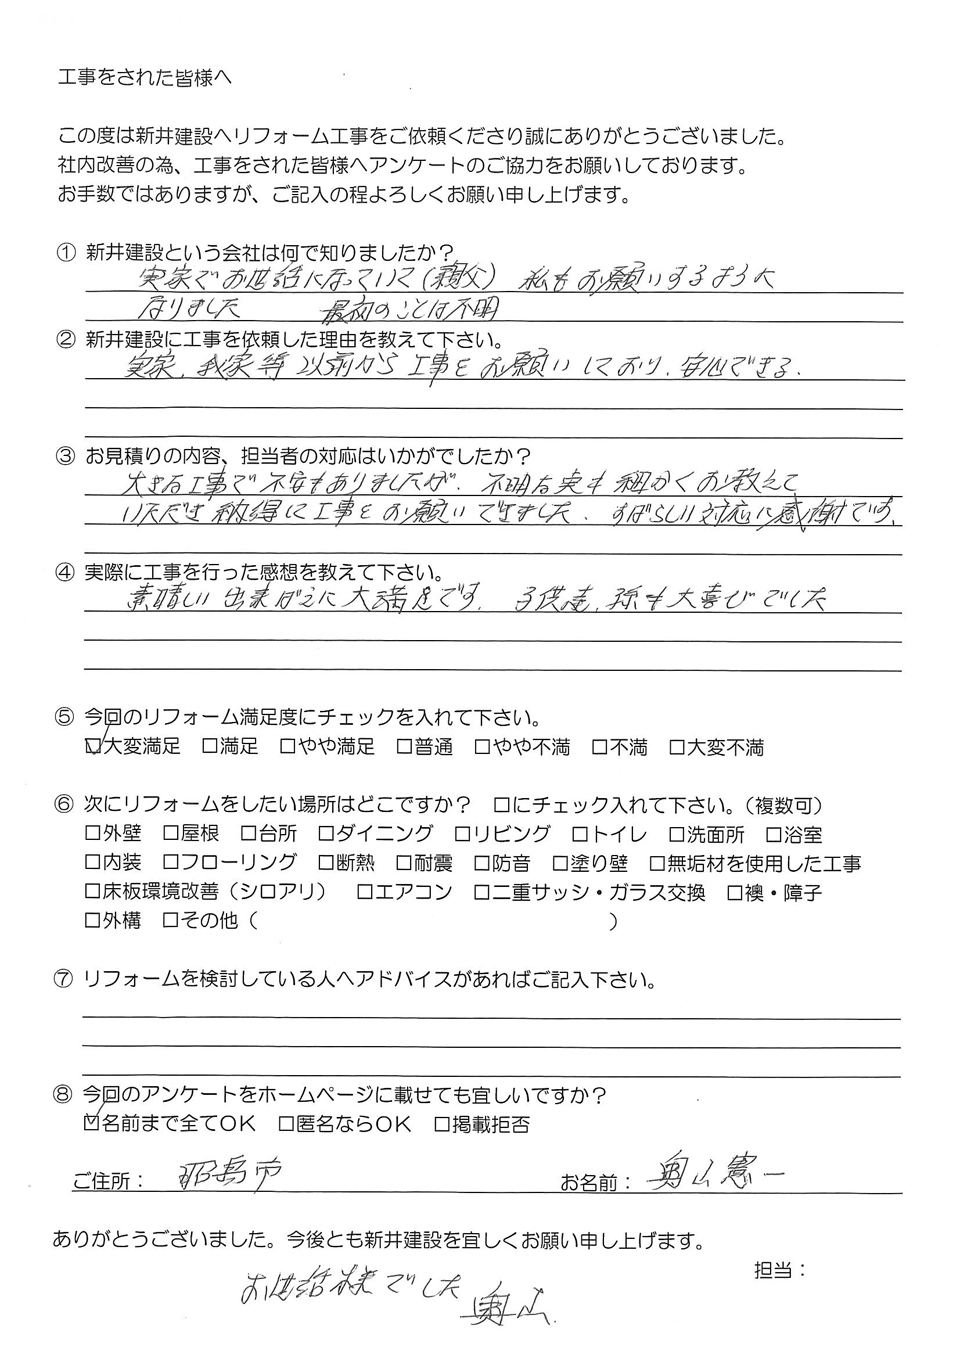 工事をされた皆様へ
この度は新井建設へリフォーム工事をご依頼くださり誠にありがとうございました。
社内改善の為、工事をされた皆様へアンケートのご協力をお願いしております。
お手数ではありますが、ご記入の程よろしくお願い申し上げます。
① 新井建設という会社は何で知りましたか？
実家でお世話になっていて(親父) 私もお願いするように
なりました 最初のことは不明
② 新井建設に工事を依頼した理由を教えて下さい。
実家、我家等 以前から工事をお願いしており、安心できる。
③ お見積りの内容、担当者の対応はいかがでしたか？
大きな工事で不安もありましたが、不明な点も細かくお教えて
いただき納得に工事をお願いできました。すばらしい対応に感謝です。
④ 実際に工事を行った感想を教えて下さい。
素晴しい出来ばえに大満足です。子供達、孫も大喜びでした
⑤ 今回のリフォーム満足度にチェックを入れて下さい。
☑大変満足 □満足 □やや満足 □普通 □やや不満 □不満 □大変不満
⑥ 次にリフォームをしたい場所はどこですか？ □にチェック入れて下さい。（複数可）
□外壁 □屋根 □台所 □ダイニング □リビング □トイレ □洗面所 □浴室
□内装 □フローリング □断熱 □耐震 □防音 □塗り壁 □無垢材を使用した工事
□床板環境改善（シロアリ） □エアコン □二重サッシ・ガラス交換 □襖・障子
□外構 □その他（ ）
⑦ リフォームを検討している人へアドバイスがあればご記入下さい。
⑧ 今回のアンケートをホームページに載せても宜しいですか？
☑名前まで全てOK □匿名ならOK □掲載拒否
ご住所： お名前： 奥山憲一
ありがとうございました。今後とも新井建設を宜しくお願い申し上げます。
担当：
お世話様でした 奥山